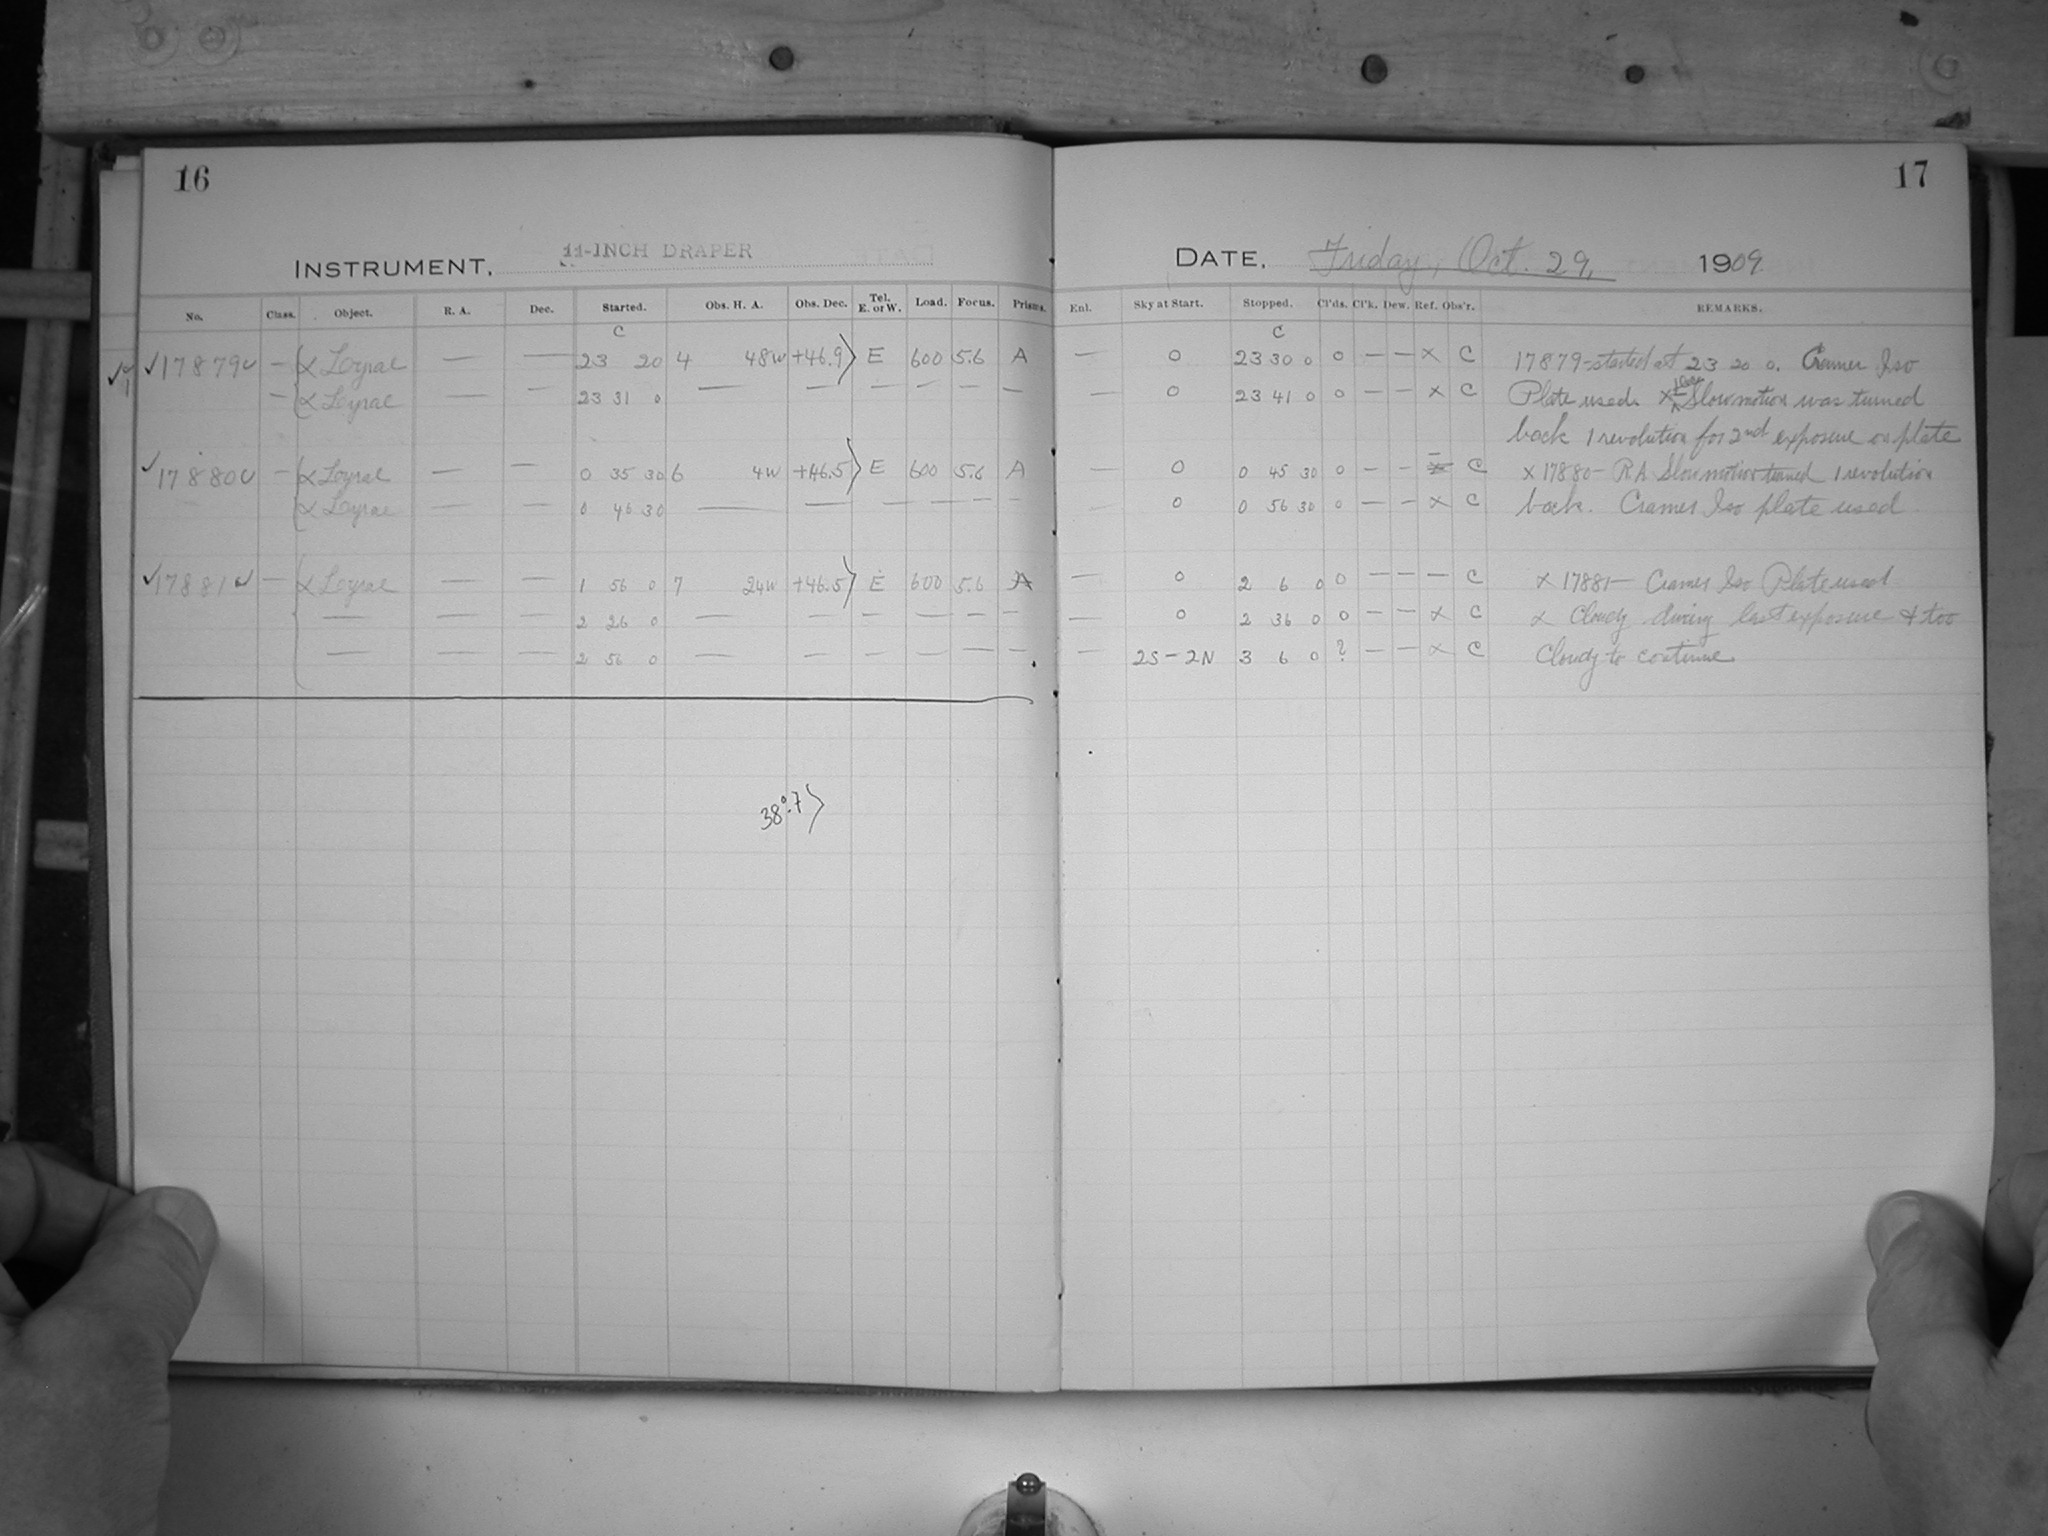 16
INSTRUMENT, 11-INCH DRAPER
No. Class. Object. R. A. Dec. Started. Obs. H. A. Obs. Dec. Tel. E. or W. Load. Focus. Prisms.
C
✓17879✓ — α Lyrae — — 23 20 4 48W +46.9 E 600 5.6 A
— α Lyrae — — 23 31 0 — — — — — —
✓17880✓ — α Lyrae — — 0 35 30 6 4W +46.5 E 600 5.6 A
α Lyrae — — 0 46 30 — — — — — —
✓17881✓ — α Lyrae — — 1 56 0 7 24W +46.5 E 600 5.6 A
— — — 2 26 0 — — — — — —
— — — 2 56 0 — — — — — —
38°.7
17
DATE, Friday, Oct. 29, 1909
Enl. Sky at Start. Stopped. Cl'ds. Cl'k. Dew. Ref. Obs'r. REMARKS.
C
— 0 23 30 0 0 — — × C 17879-started at 23 20 0. Cramer Iso
— 0 23 41 0 0 — — × C Plate used. × Slow motion was turned
back 1 revolution for 2nd exposure on plate
— 0 0 45 30 0 — — — C × 17880 — R.A. Slow motion turned 1 revolution
0 0 56 30 0 — — × C back. Cramer Iso plate used
— 0 2 6 0 0 — — — C × 17881 — Cramer Iso Plate used
— 0 2 36 0 0 — — × C × Cloudy during last exposure & too
— 2S — 2N 3 6 0 ? — — × C Cloudy to continue